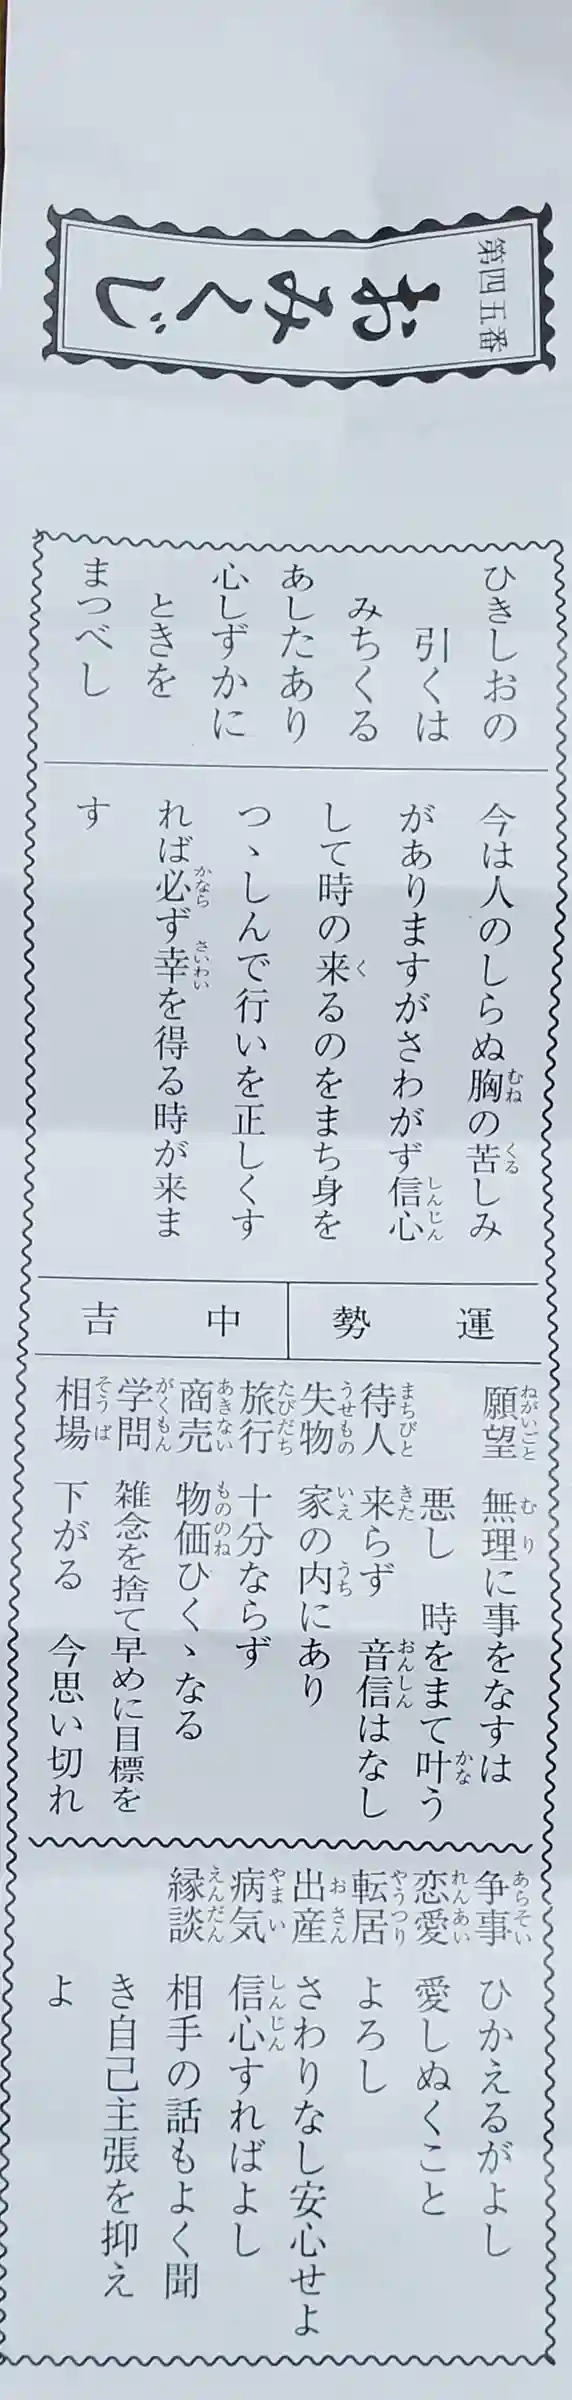 第四五番
おみくじ
ひきしおの
引くは
みちくる
あしたあり
心しずかに
ときを
まつべし
今は人のしらぬ胸の苦しみ
がありますがさわがず信心
して時の来るのをまち身を
つゝしんで行いを正しくす
れば必ず幸を得る時が来ま
す
運勢
中吉
願望 無理に事をなすは
悪し 時をまて叶う
待人 来らず 音信はなし
失物 家の内にあり
旅行 十分ならず
商売 物価ひくゝなる
学問 雑念を捨て早めに目標を
相場 下がる 今思い切れ
争事 ひかえるがよし
恋愛 愛しぬくこと
転居 よろし
出産 さわりなし安心せよ
病気 信心すればよし
縁談 相手の話もよく聞
き自己主張を抑え
よ